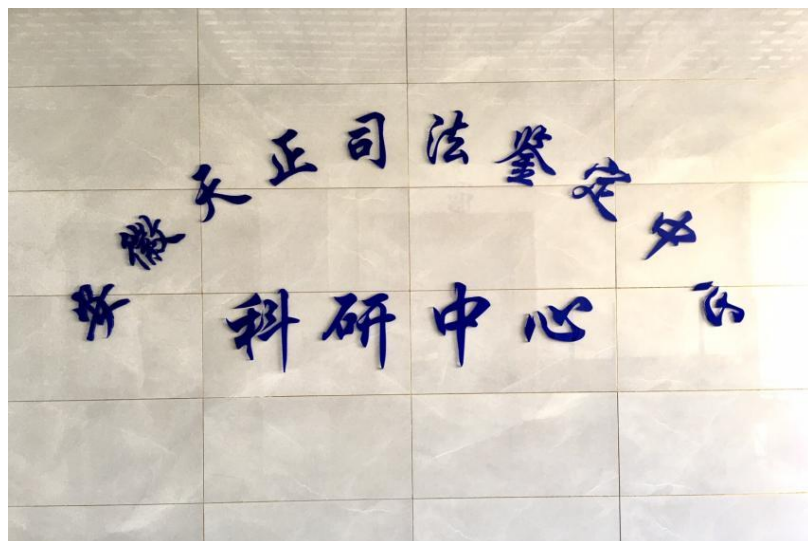 安徽天正司法鉴定中心
科研中心